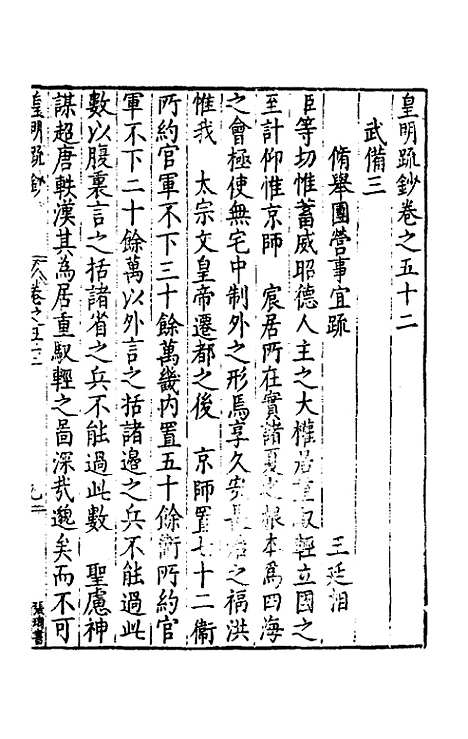 皇明疏鈔卷之五十二
武備三
脩舉團營事宜疏 王廷相
臣等切惟蓄威昭德人主之大權居重馭輕立國之
至計仰惟京師 宸居所在實諸夏之根本為四海
之會極使無宅中制外之形焉享久安長治之福洪
惟我 太宗文皇帝遷都之後 京師置七十二衞
所約官軍不下三十餘萬畿內置五十餘衞所約官
軍不下二十餘萬以外言之括諸邊之兵不能過此
數以腹裏言之括諸省之兵不能過此數 聖慮神
謀超唐軼漢其為居重馭輕之啚深哉邈矣而不可
皇明疏鈔 卷之五十二